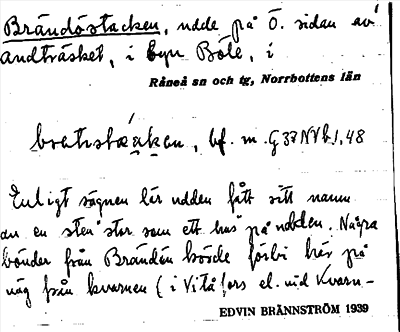 Brändöstacken, udde på Ö. sidan av
andträsket, i byn Böle, i
Råneå sn och tg, Norrbottens län
bf. m. G37NVb1,48
Enligt sägnen lär udden fått sitt namn
av en sten "stor som ett hus" på udden. Några
bönder från Brändön körde förbi här på
väg från kvarnen (i Vitåfors el. vid Kvarn-
EDVIN BRÄNNSTRÖM 1939